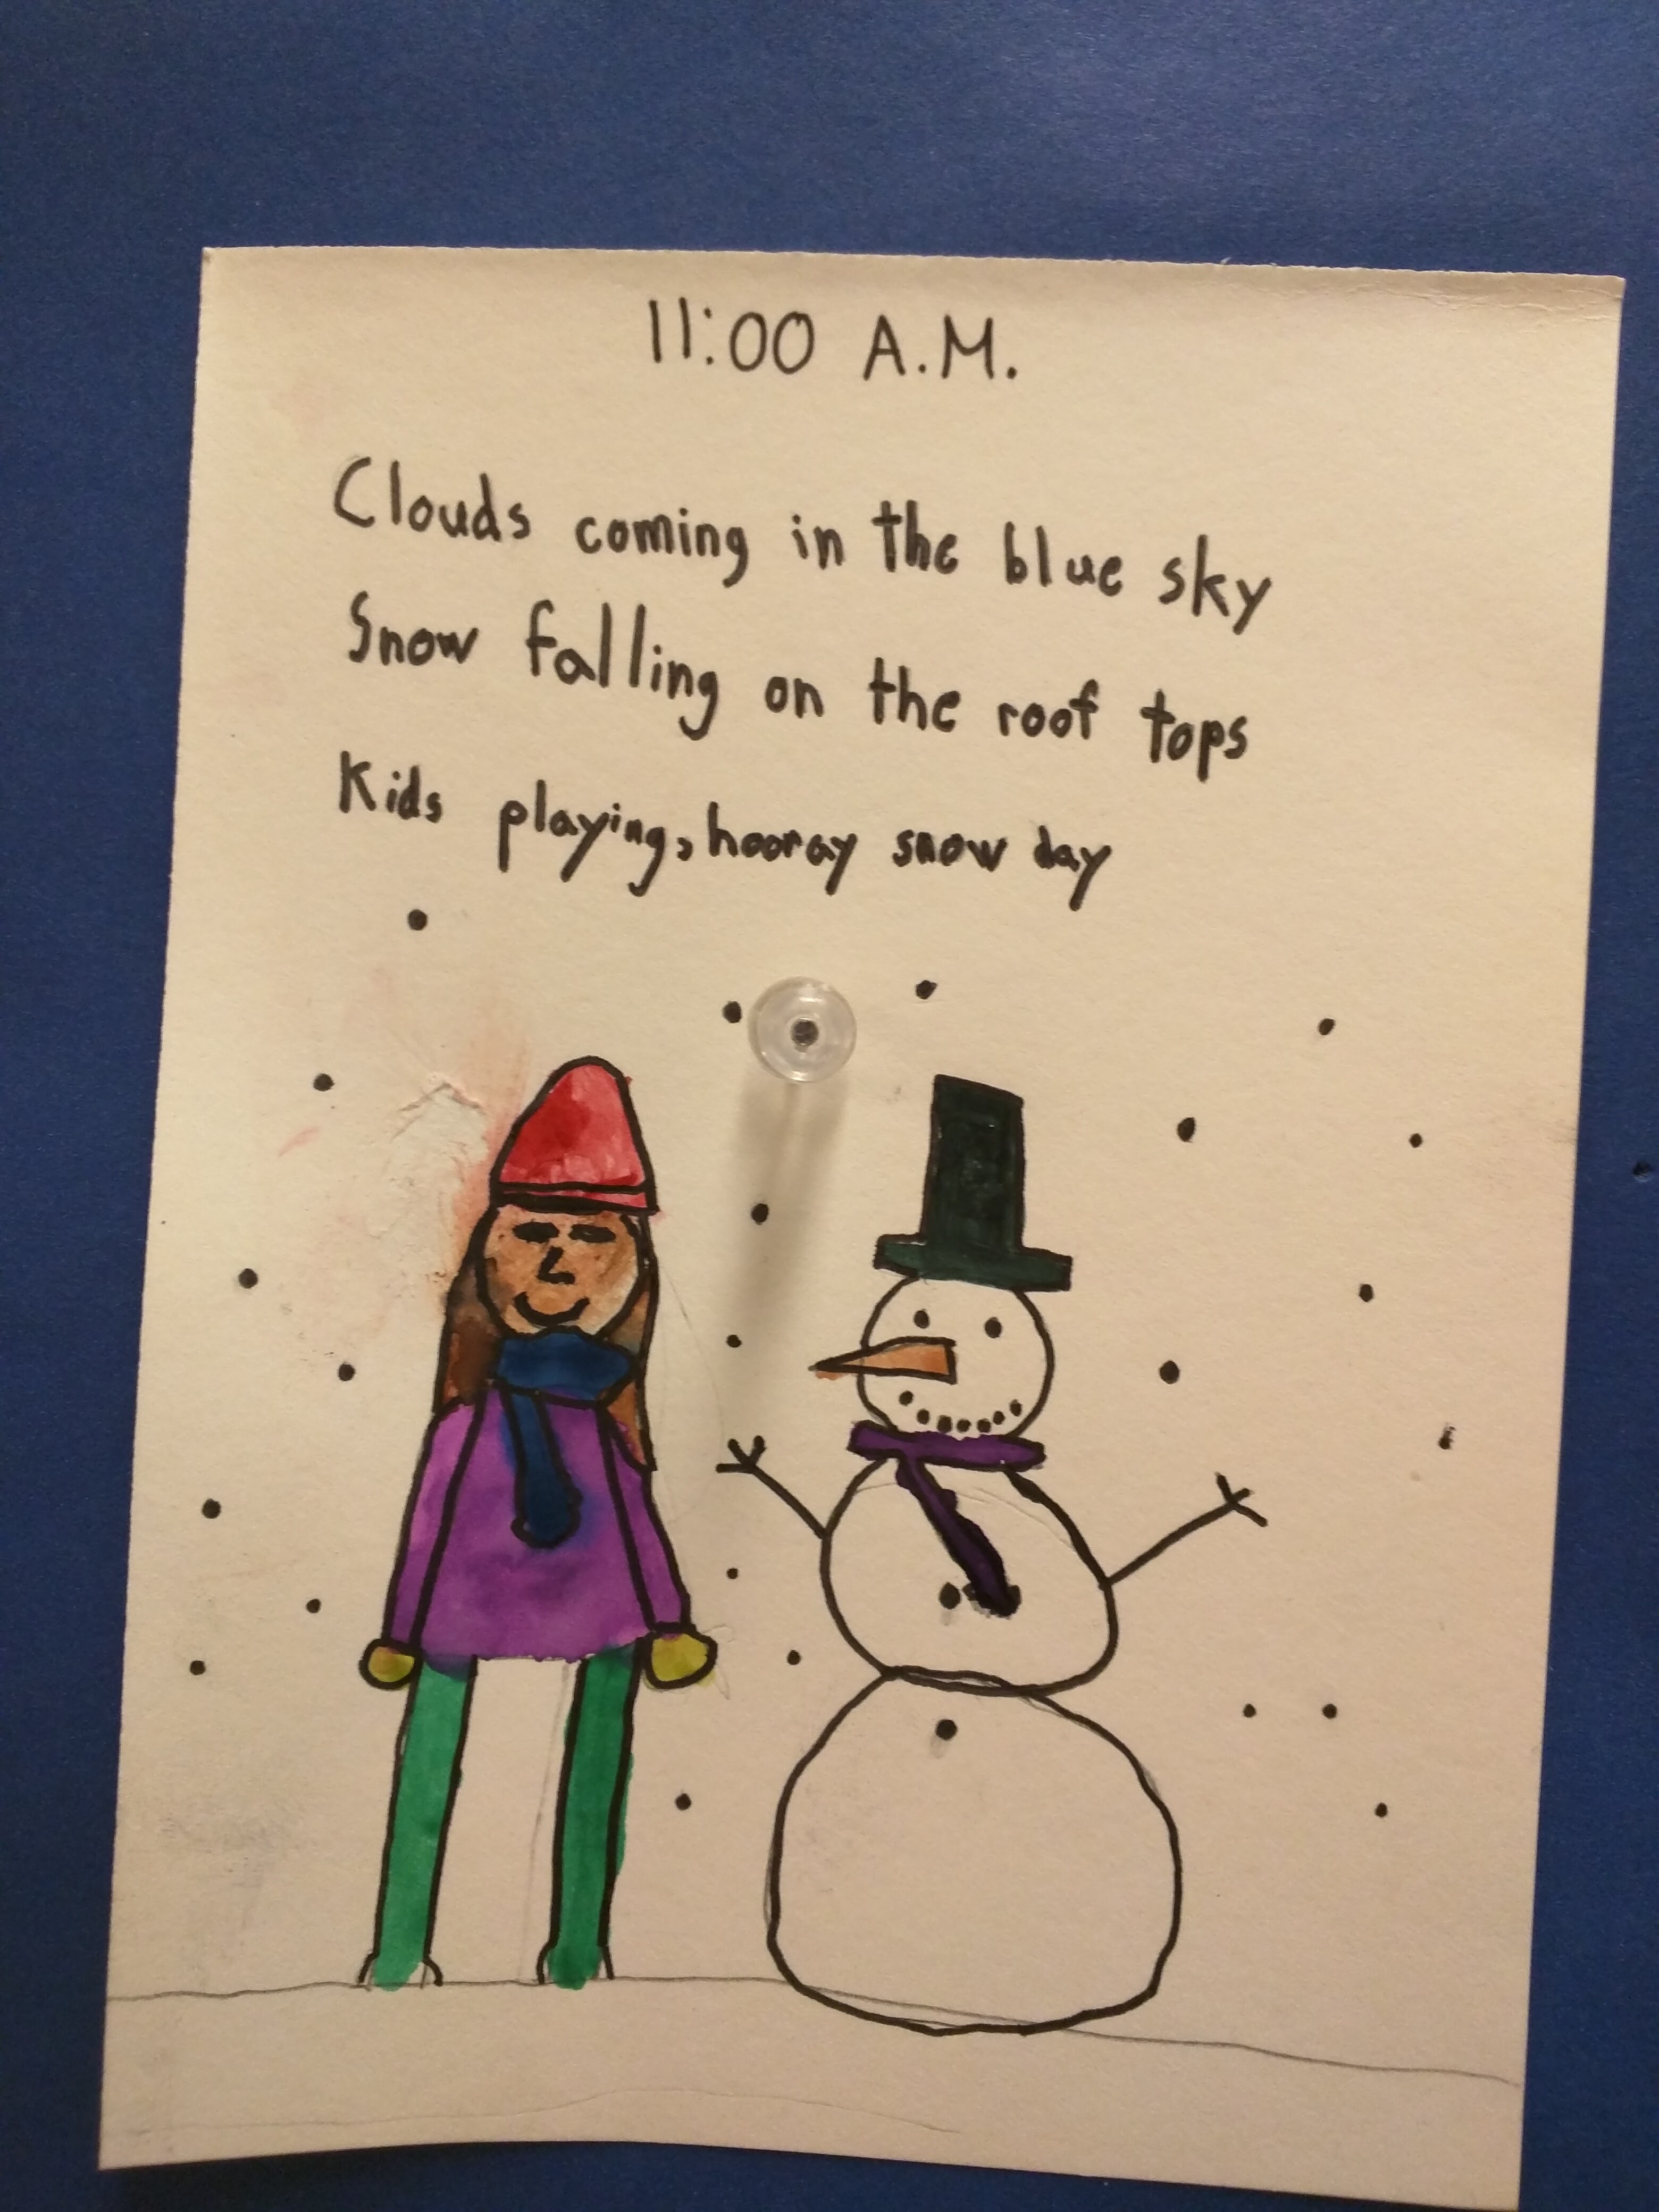 11:00 A.M.
Clouds coming in the blue sky
Snow falling on the roof tops
Kids playing, hooray snow day